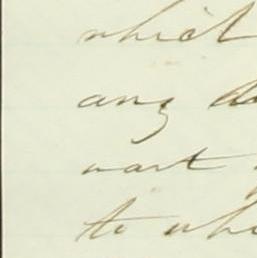 which
any
want
to